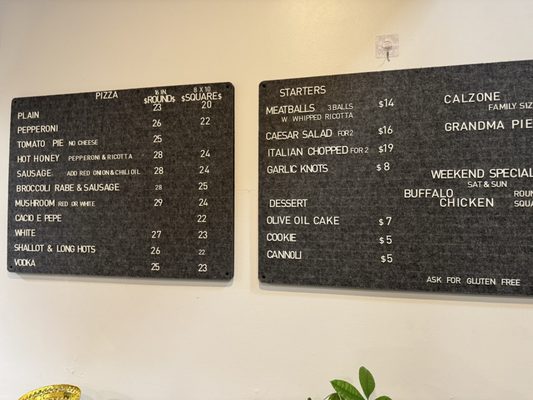 PIZZA
16 IN $ROUND$
8 X 10 $SQUARE$
PLAIN 23 20
PEPPERONI 26 22
TOMATO PIE NO CHEESE 25
HOT HONEY PEPPERONI & RICOTTA 28 24
SAUSAGE ADD RED ONION & CHILI OIL 28 24
BROCCOLI RABE & SAUSAGE 28 25
MUSHROOM RED OR WHITE 29 24
CACIO E PEPE 22
WHITE 27 23
SHALLOT & LONG HOTS 26 22
VODKA 25 23
STARTERS
MEATBALLS 3 BALLS $14
W. WHIPPED RICOTTA
CAESAR SALAD FOR 2 $16
ITALIAN CHOPPED FOR 2 $19
GARLIC KNOTS $8
DESSERT
OLIVE OIL CAKE $7
COOKIE $5
CANNOLI $5
CALZONE
FAMILY SIZE
GRANDMA PIE
WEEKEND SPECIAL
SAT & SUN
BUFFALO ROUN
CHICKEN SQUA
ASK FOR GLUTEN FREE